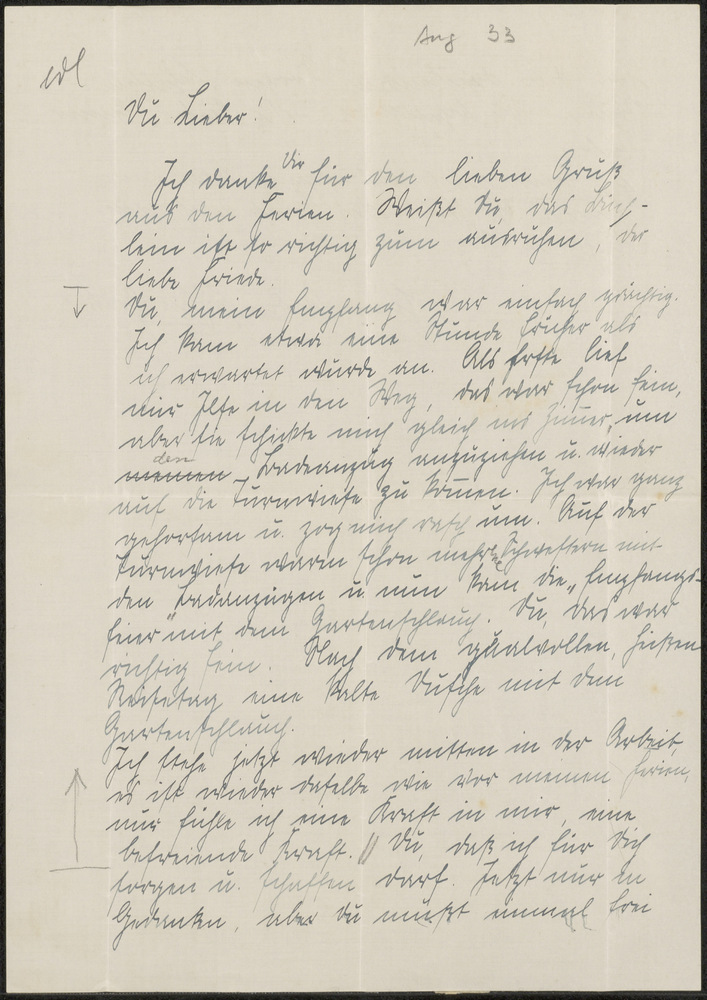 Aug 33
Du Lieber!
Ich danke Dir für den lieben Gruß
aus den Ferien. Weißt Du, das Büch-
lein ist so richtig zum ausruhen, der
liebe Friede.
Du, mein Empfang war einfach prächtig.
Ich kam etwa eine Stunde früher als
ich erwartet wurde an. Als Erste lief
mir Ilse in den Weg, das war schon fein,
aber sie schickte mich gleich ins Zimmer, um
meinen den Badeanzug anzuziehen u. wieder
auf die Turnwiese zu kommen. Ich war ganz
gehorsam u. zog mich rasch um. Auf der
Turnwiese waren schon mehrere Schwestern mit
den Badanzügen u. nun kam die „Empfangs-
feier" mit dem Gartenschlauch. Du, das war
richtig fein. Nach dem qualvollen, heißen
Reisetag eine kalte Dusche mit dem
Gartenschlauch.
Ich stehe jetzt wieder mitten in der Arbeit,
es ist wieder dasselbe wie vor meinen Ferien,
nur fühle ich eine Kraft in mir, eine
befreiende Kraft. // Du, daß ich für Dich
sorgen u. schaffen darf. Jetzt nur in
Gedanken, aber Du mußt einmal frei